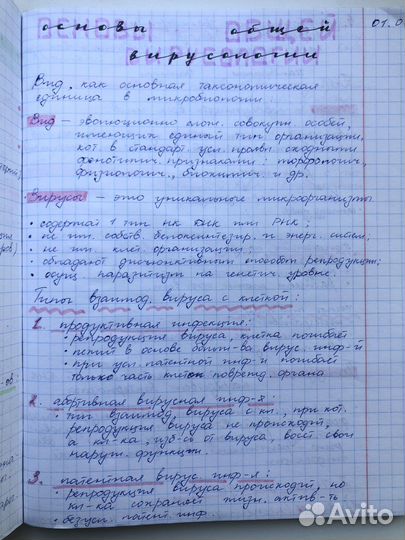 01.0
основы общей
вирусологии
Вид, как основная таксономическая
единица в микробиологии.
Вид – эволюционно слож. совокупн. особей,
имеющих единый тип организации,
кот. в стандарт. усл. прояв. сходными
фенотипич. признаками: морфологич.,
физиологич., биохимич. и др.
Вирусы – это уникальные микроорганизмы
• содержат 1 тип нк ДНК или РНК;
• не им. собств. белоксинтезир. и энерг. систем;
• не им. клет. организации;
• обладают дизъюнктивным способом репродукции;
• осущ. паразитизм на генетич. уровне.
Типы взаимод. вируса с клеткой:
1. продуктивная инфекция:
• репродукция вируса, клетка погибает
• лежит в основе больш-ва вирус. инф-й
• при усл. латентной инф-и погибает
только часть клеток поврежд. органа
2. абортивная вирусная инф-я:
• тип взаимод. вируса с кл., при кот.
репродукция вируса не происходит,
а кл-ка, изб-сь от вируса, восст. свои
наруш. функции.
3. латентная вирус. инф-я:
• репродукция вируса происходит, но
кл-ка сохраняет жизн. актив-ть
• латент. инф.
Avito